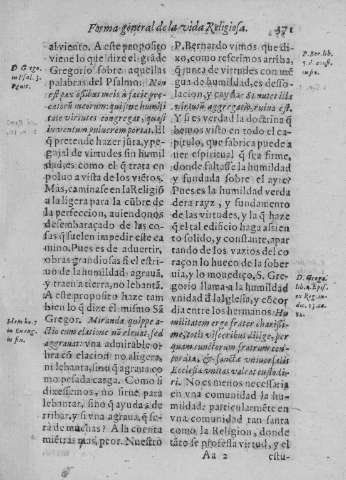 Forma general de la vida Religiosa. 371
al viento. A este proposito
viene lo que dize el grāde
Gregorio sobre aquellas
palabras del Psalmo:
in eum puluerem portat. El
q̄ pretende hazer jūta, y pe-
gujal de virtudes sin humil
dad, es como el q̄ trata en
poluo a vista de los viētos.
Mas, caminase en la Religiō
a la ligera para la cūbre de
la perfeccion, auiendonos
desembaraçado de las co-
sas q̄ suelen impedir este ca-
mino. Pues es de aduertir,
obras grandiosas si el estri-
uo de la humildad: agrauā,
y traen a tierra, no lebantā.
A este proposito haze tam
bien lo q̄ dize el mismo Sā
Gregor. Miranda quippe a-
ctio cum elatione nō eleuat, sed
aggrauat: vna admirable o-
bra cō elacion no aligera,
ni lebanta, sino q̄ agraua co
mo pesada carga. Como si
dixessemos, no sirue para
lebantar, sino q̄ ayuda a de
rribar, y si vna agraua, q̄ se-
rá de muchas? A la cuenta
miētras mas, peor. Nuestro
P. Bernardo vimos que di-
xo, como referimos arriba,
q̄ junta de virtudes con mē
gua de humildad, es desu-
nion, y cayda: Si nutet illa
virtutum aggregatio, ruina est.
Y si es verdad la doctrina q̄
hemos visto en todo el ca-
pitulo, que fabrica puede a
uer espiritual q̄ sea firme,
donde faltasse la humildad
y fundada sobre el ayre?
Pues es la humildad verda
dera rayz, y fundamento
de las virtudes, y la q̄ haze
q̄ el tal edificio haga asien
to solido, y constante, apar
tando de los vazios del co
raçon lo hueco de la sober
uia, y lo mouediço. S. Gre
gorio llama a la humildad
vnidad d̄ la Iglesia, y cōcor
dia entre los hermanos. Hu
militatem ergo frater charissi-
me, totis visceribus dilige, per
quam cunctorum fratrum con-
cordia, & sancta vniuersalis
Ecclesia vnitas valeat custodi-
ri. No es menos necessaria
en vna comunidad la hu
mildad: particularmēte en
vna comunidad tan santa
como la Religion, donde
tāto se professa virtud, y el
Aa 2 estu-
D. Grego.
D. Ber. lib.
D. Grego.
lib. 4. Epis.